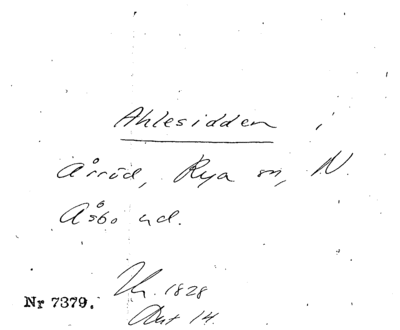 Ahlesidden i
Årröd, Rya sn, N.
Åsbo hd.
1828
Nr 7379.
Akt 14.